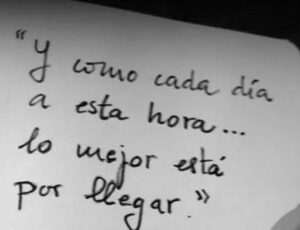 “y como cada día
a esta hora...
lo mejor está
por llegar.”